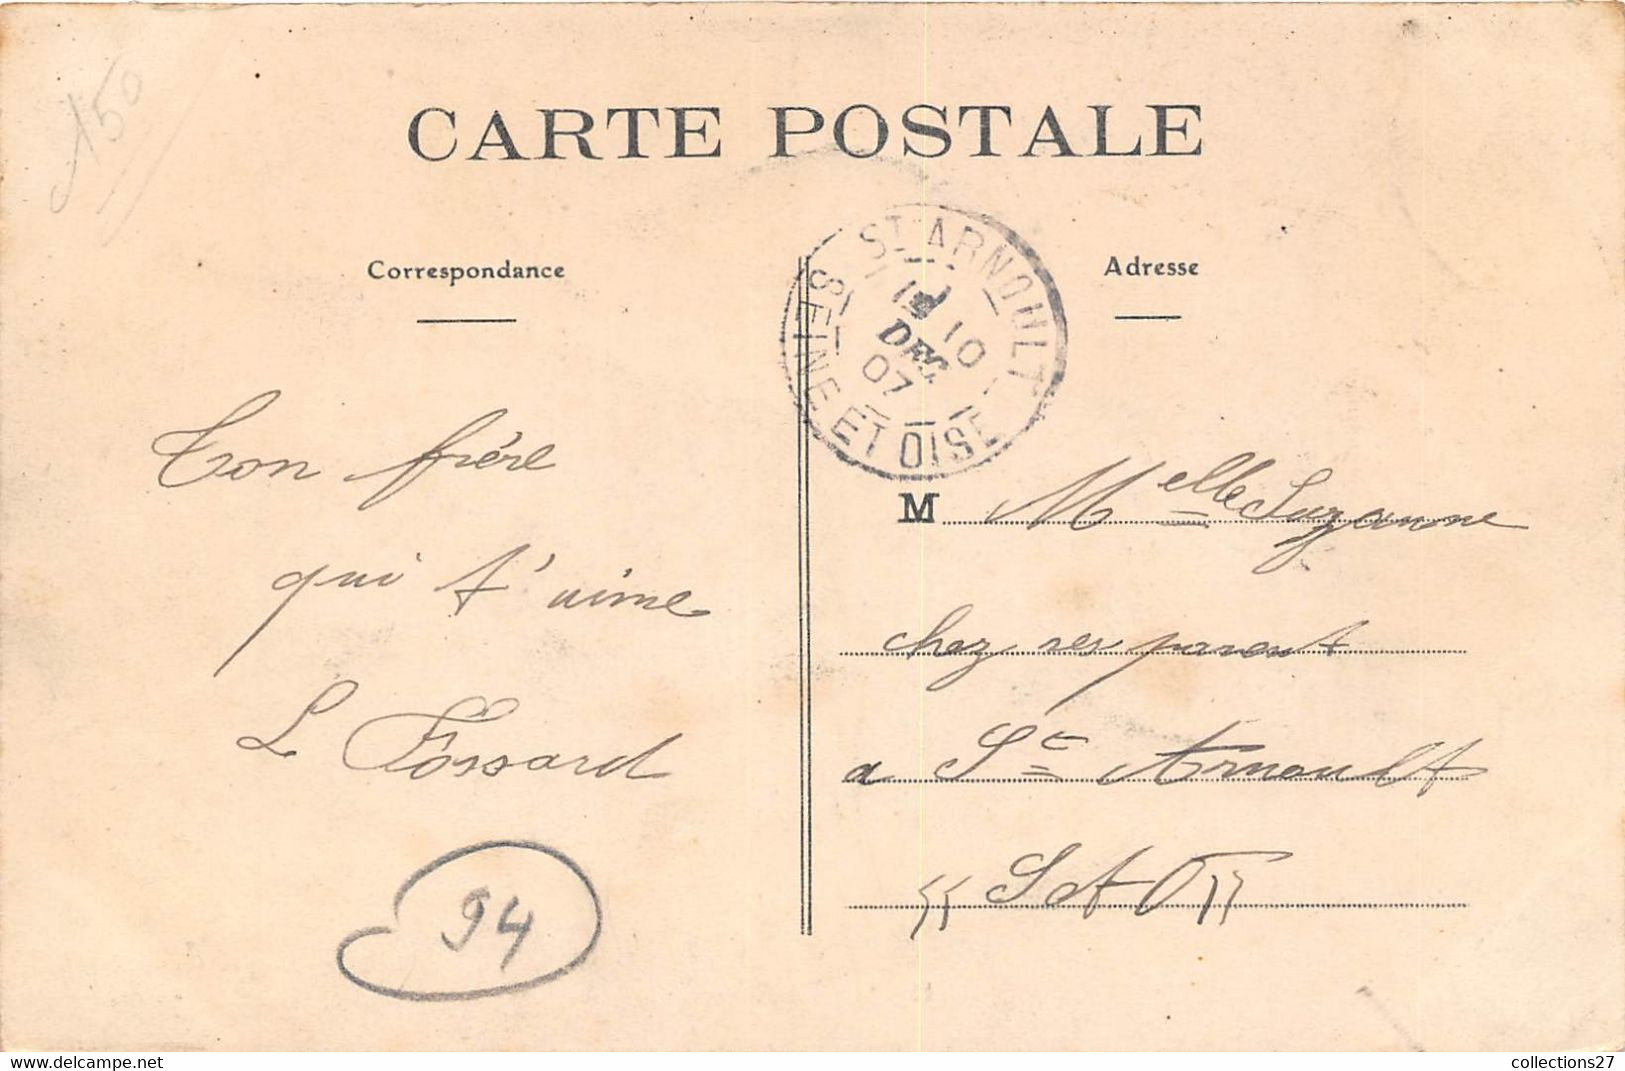 CARTE POSTALE
Correspondance
Adresse
ST ARNOULT
10
DEC.
07
SEINE ET OISE
Ton frère
qui t'aime
L Fossard
94
M Melle Suzanne
chez ses parent
a St Arnoult
S et O
www.delcampe.net
collections27